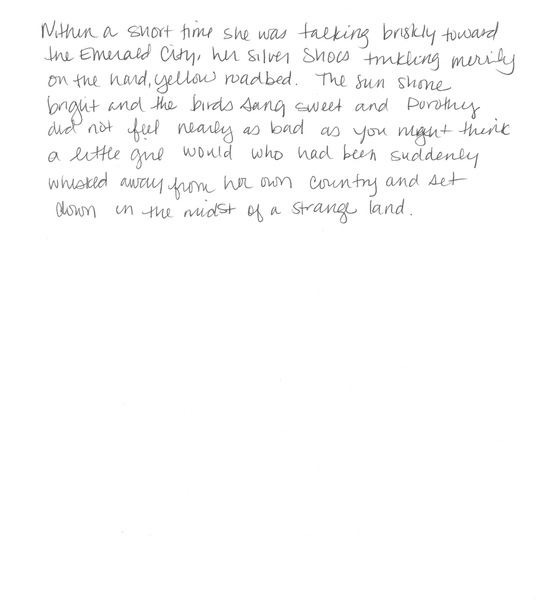 Within a short time she was talking briskly toward
the Emerald City, her Silver Shoes tinkling merrily
on the hard, yellow roadbed. The sun shone
bright and the birds sang sweet and Dorothy
did not feel nearly as bad as you might think
a little girl would who had been suddenly
whisked away from her own country and set
down in the midst of a strange land.